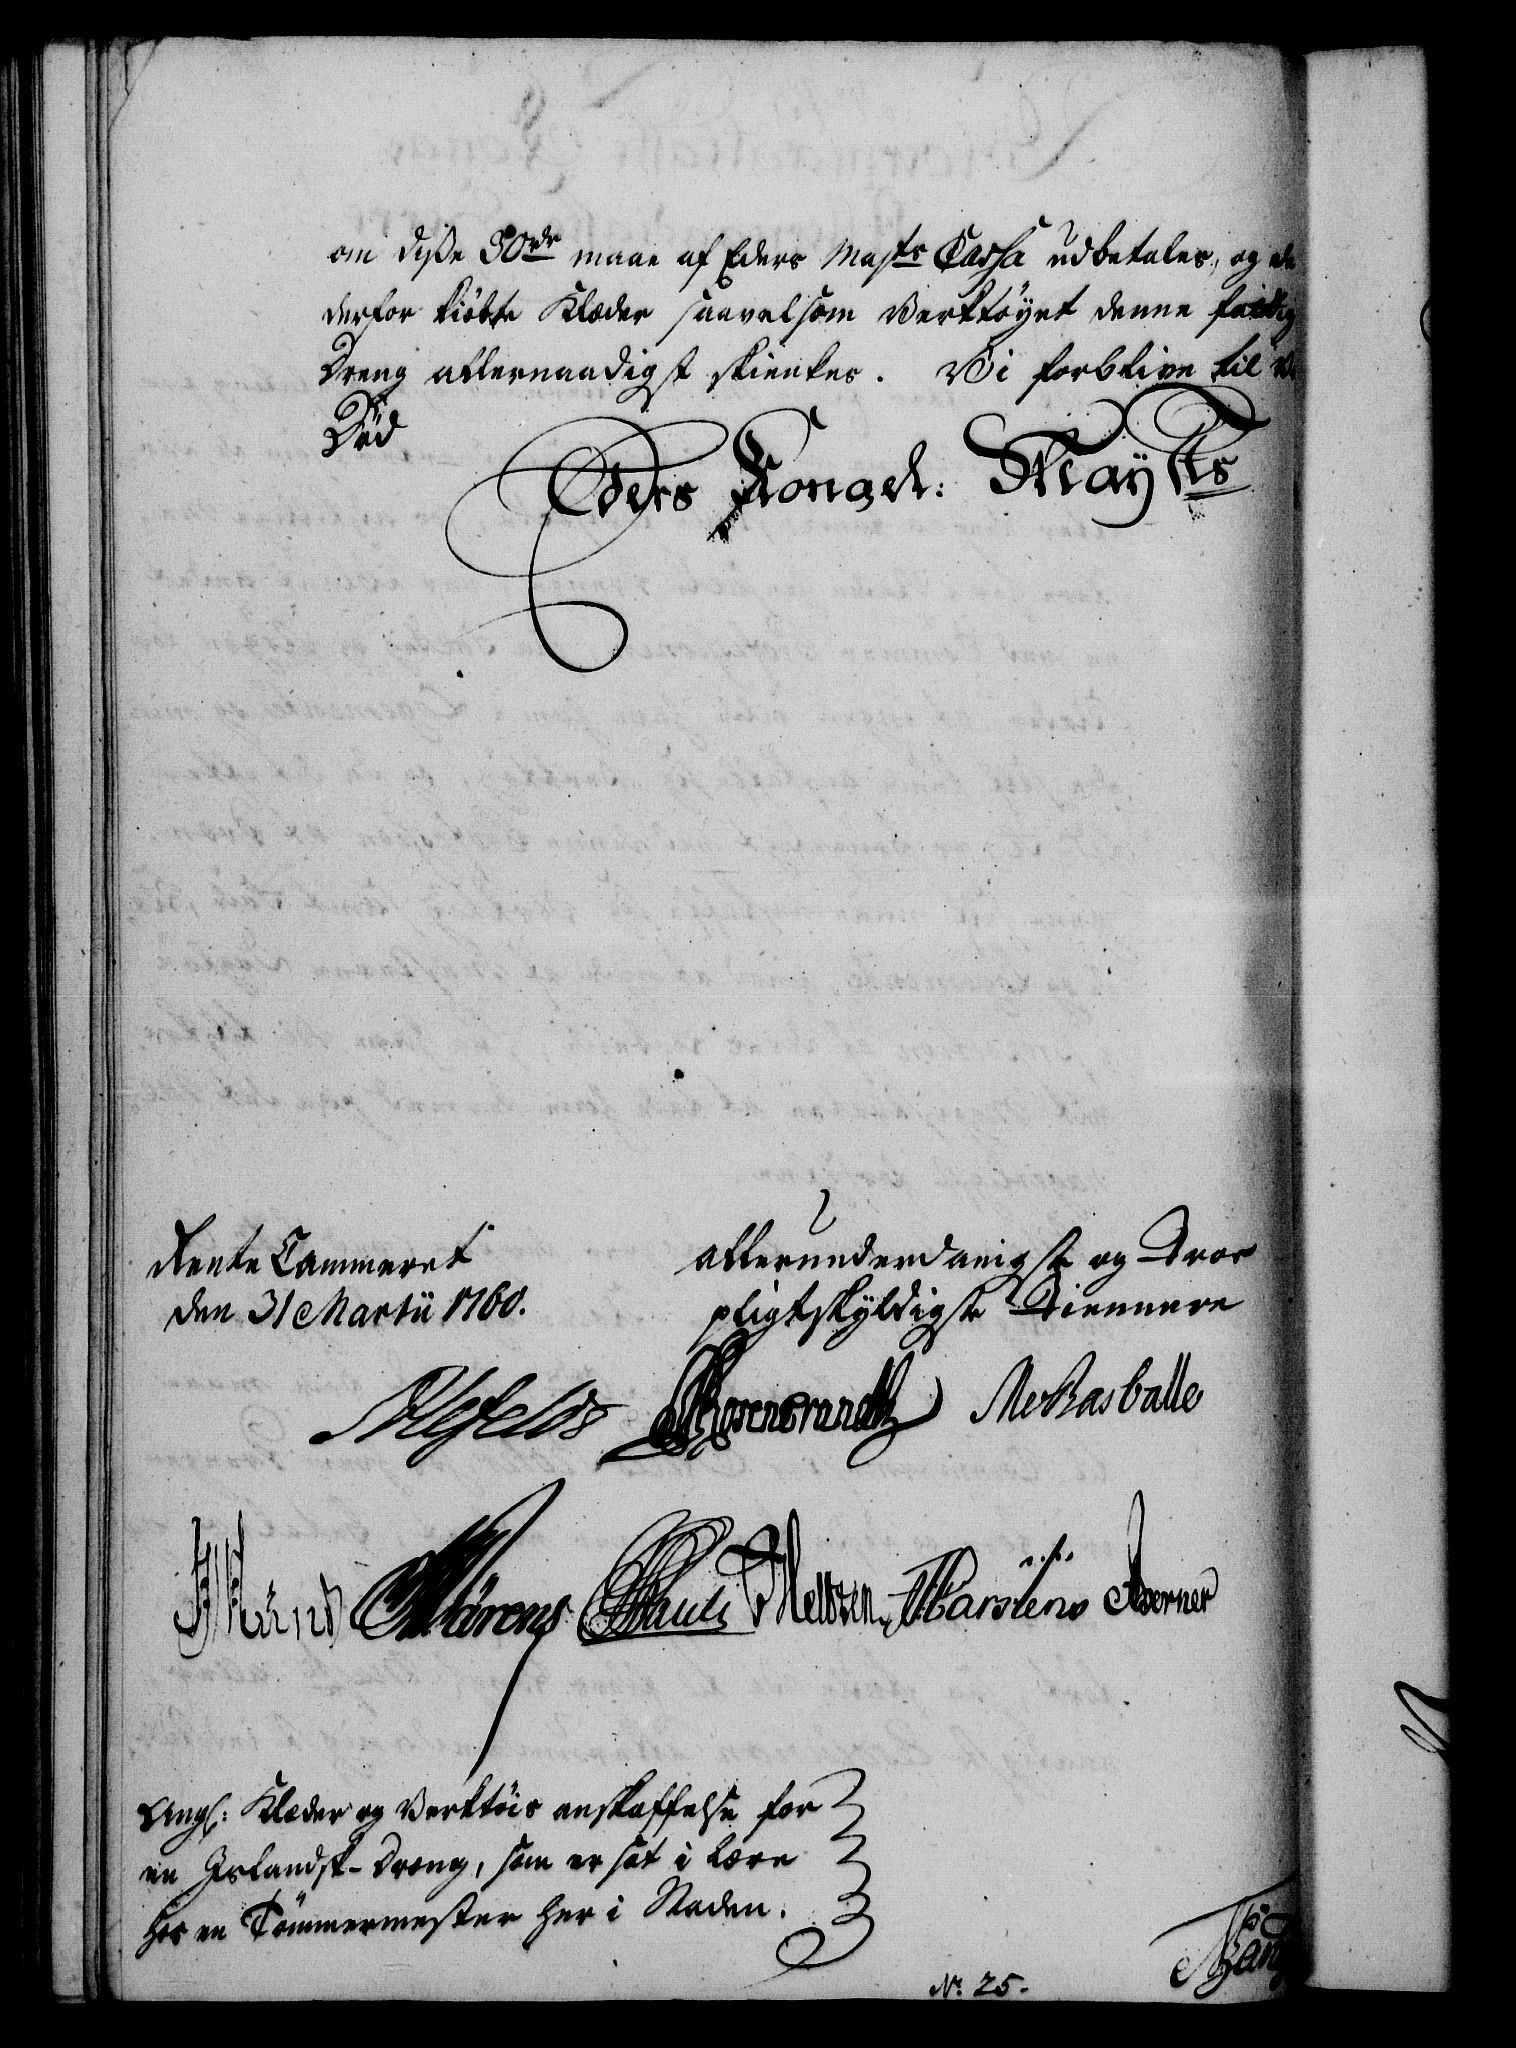 om disse 30 rdr maae af Eders Mayts Cassa udbetales, og de
derfor kiöbte Klæder saavelsom Verktöyet denne fattig
Dreng allernaadigst skienkes. Vi forblive til v
Död
Eders Kongel: Mayts
Rente Cammeret
den 31 Martii 1760.
allerunderdanigste og Troe
pligtskyldigste Tiennere
Ahlefeldt Rosenkrantz
Mörens Pauli Meltzen Marstens
Ang: Klæder og Verktöis anskaffelse for
en Islandsk-Dreng, som er sat i lære
hos en Tömmermester her i Staden.
No. 25.